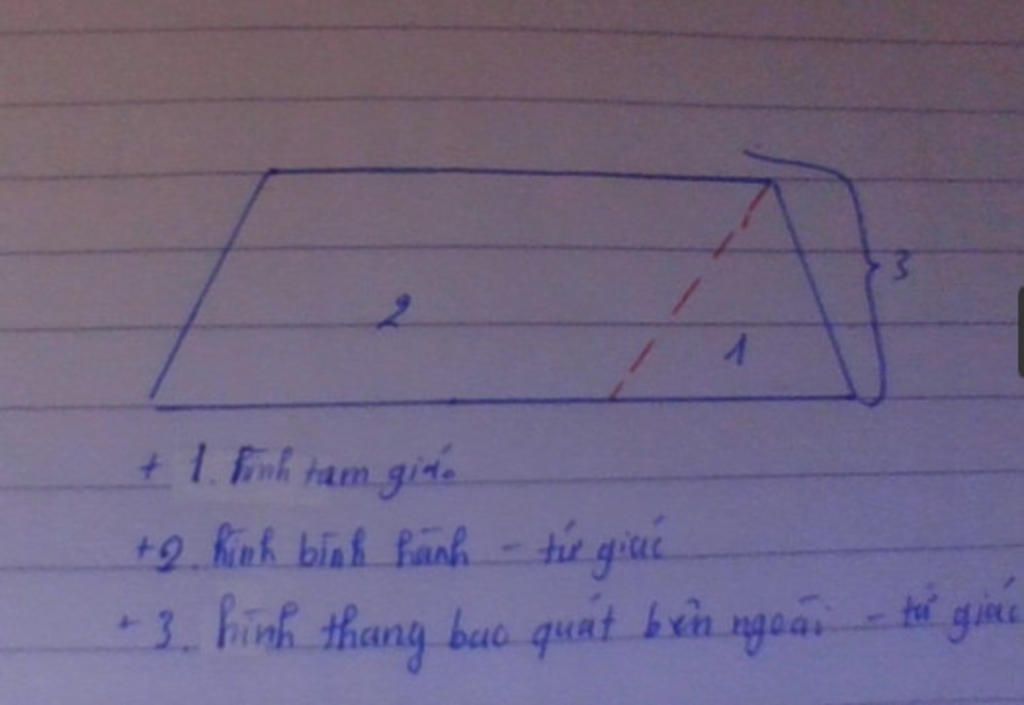 3
2
1
+ 1. hình tam giác
+2. hình bình hành - tứ giác
+ 3. hình thang bao quát bên ngoài - tứ giác